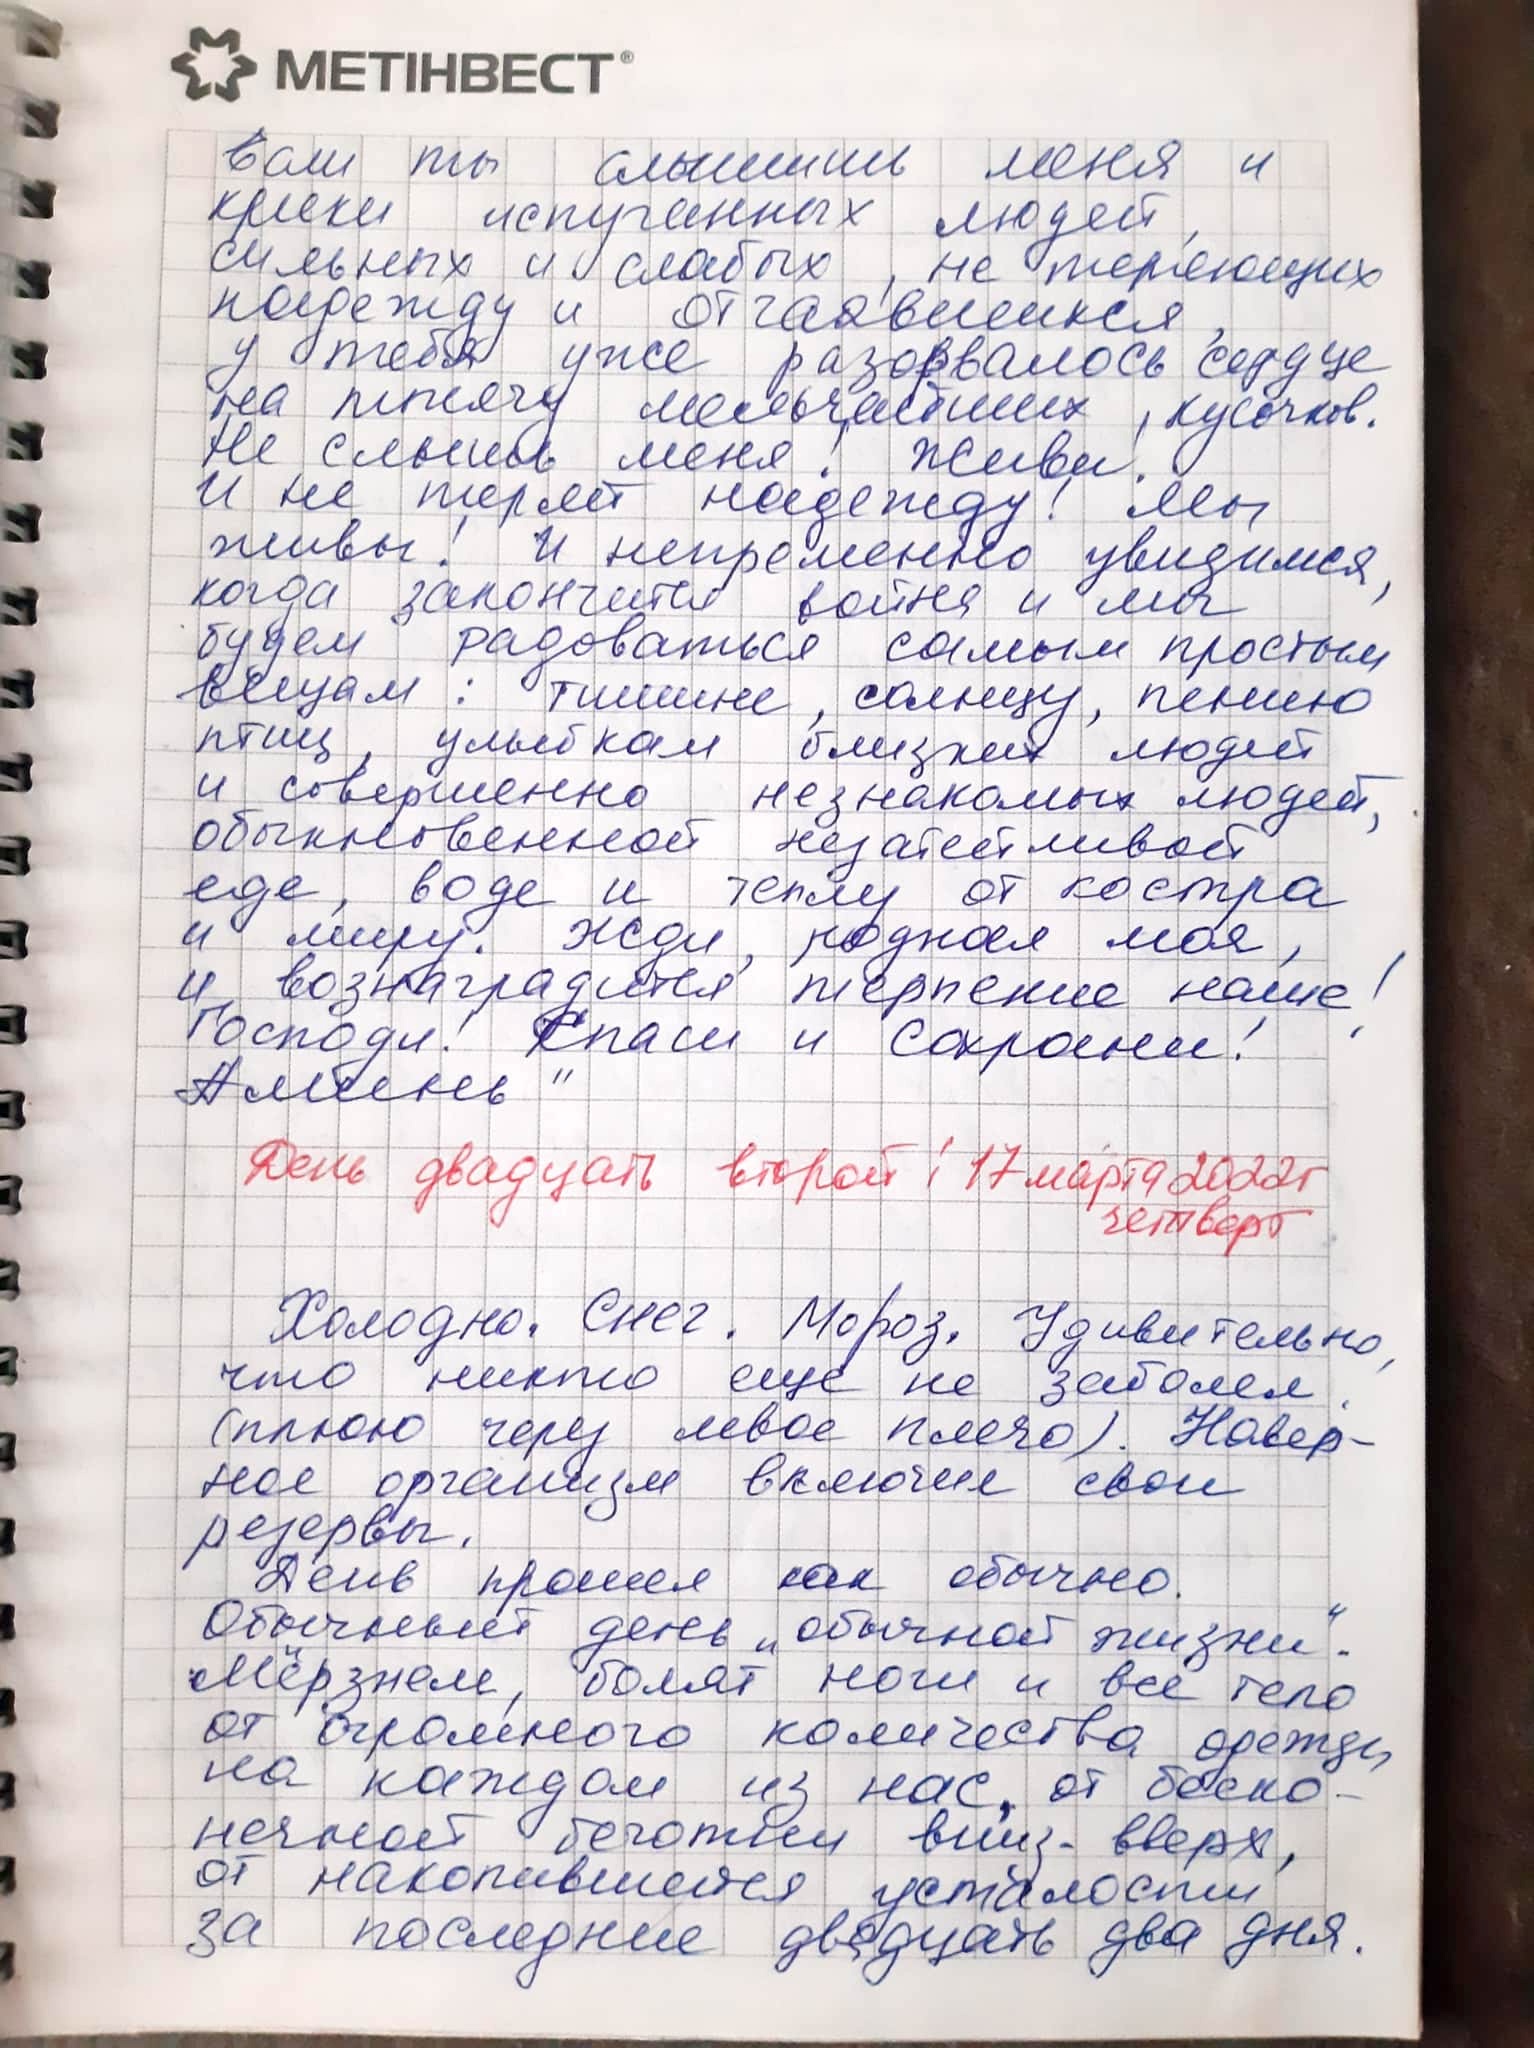 МЕТІНВЕСТ®
Если ты слышишь меня и
крики испуганных людей,
сильных и слабых, не теряющих
надежду и отчаявшихся,
у тебя уже разорвалось сердце
на тысячу мельчайших кусочков.
Не слышь меня! Живи!
И не теряй надежду! Мы
живы! И непременно увидимся,
когда закончится война и мы
будем радоваться самым простым
вещам: тишине, солнцу, пению
птиц, улыбкам близких людей
и совершенно незнакомых людей,
обыкновенной незатейливой
еде, воде и теплу от костра
и миру. Жди, родная моя,
и вознаградится терпение наше!
Господи! Спаси и Сохрани!
Аминь"
День двадцать второй! 17 марта 2022г
четверг
Холодно. Снег. Мороз. Удивительно,
что никто еще не заболел
(плюю через левое плечо). Навер-
ное организм включил свои
резервы.
День прошел как обычно.
Обычный день „обычной жизни".
Мёрзнем, болят ноги и все тело
от огромного количества одежды
на каждом из нас, от беско-
нечной беготни вниз-вверх,
от накопившейся усталости
за последние двадцать два дня.